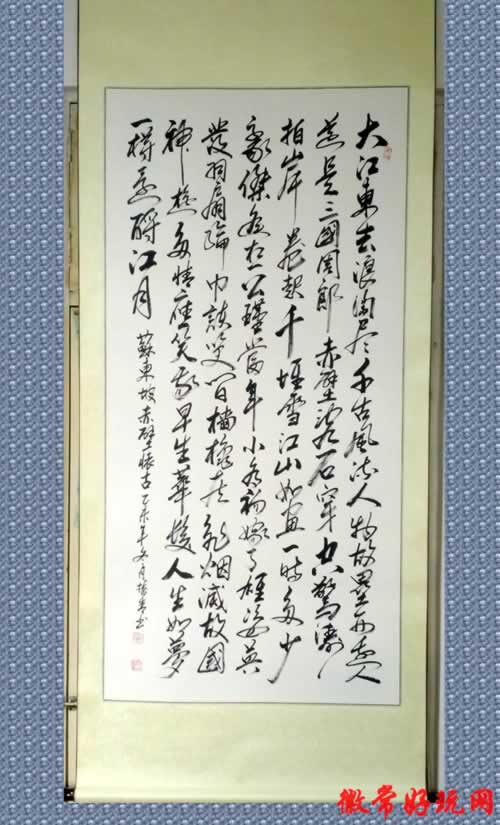 大江東去浪淘尽千古風流人物故壘西邊人
道是三國周郎赤壁乱石穿空驚濤
拍岸卷起千堆雪江山如画一時多少
豪傑遥想公瑾當年小喬初嫁了雄姿英
發羽扇綸巾談笑間檣櫓灰飛烟滅故國
神遊多情應笑我早生華髮人生如夢
一樽還酹江月 蘇東坡赤壁懷古乙未年月書
徽常好玩网